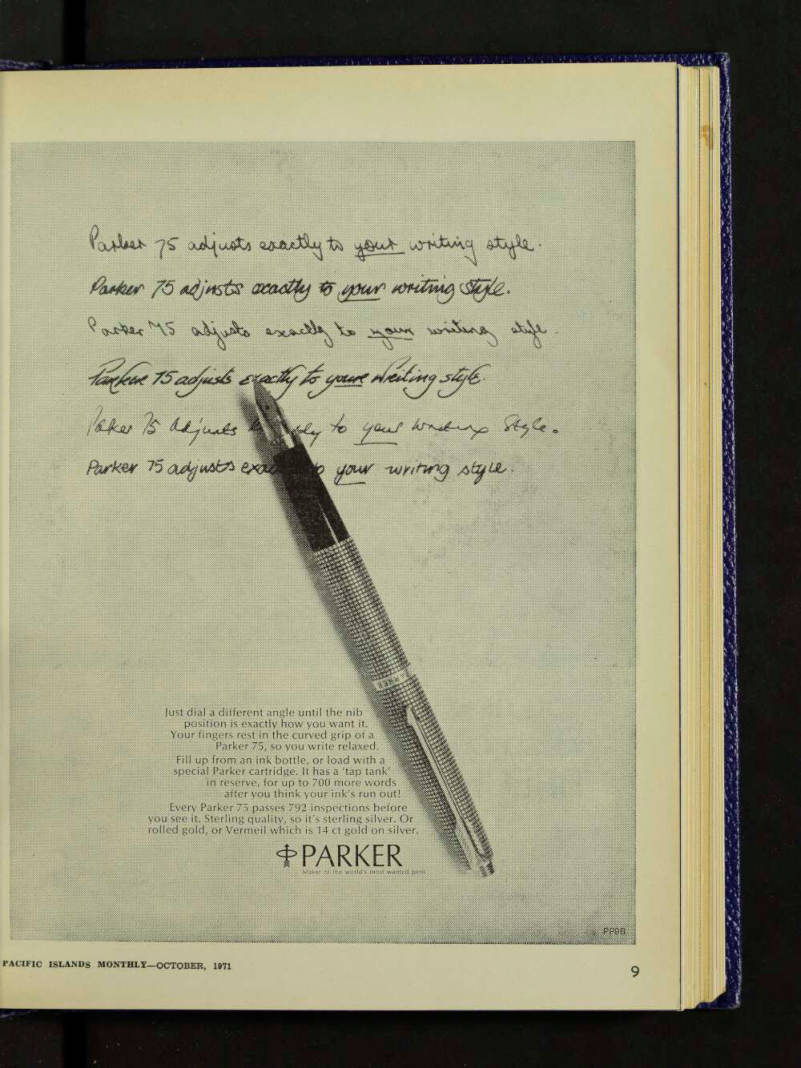 Parker 75 adjusts exactly to your writing style.
Parker 75 adjusts exactly to your writing style.
Parker 75 adjusts exactly to your writing style.
Parker 75 adjusts exactly to your writing style.
Parker 75 adjusts to your writing style.
Parker 75 adjusts exa to your writing style.
Just dial a different angle until the nib
position is exactly how you want it.
Your fingers rest in the curved grip of a
Parker 75, so you write relaxed.
Fill up from an ink bottle, or load with a
special Parker cartridge. It has a 'tap tank'
in reserve, for up to 700 more words
after you think your ink's run out!
Every Parker 75 passes 792 inspections before
you see it. Sterling quality, so it's sterling silver. Or
rolled gold, or Vermeil which is 14 ct gold on silver.
PARKER
Maker of the world's most wanted pens
PP9B
PACIFIC ISLANDS MONTHLY—OCTOBER, 1971
9